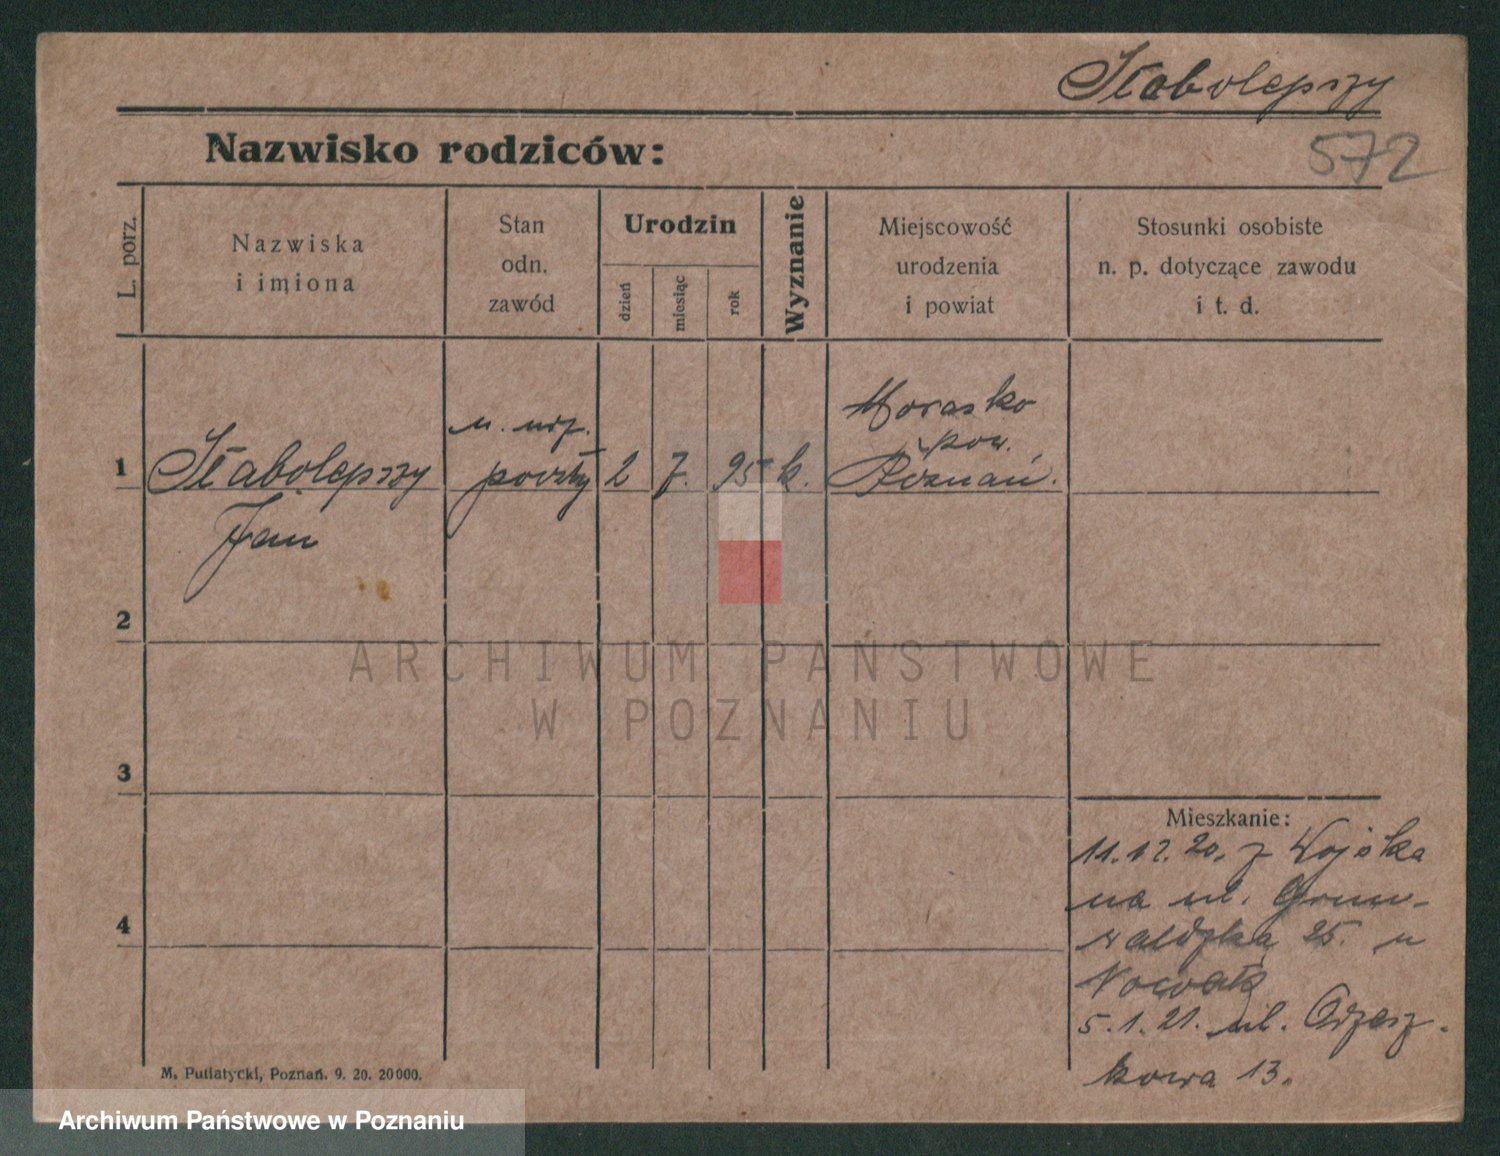 Słabolepszy
572
Nazwisko rodziców:
L. porz.
Nazwiska
i imiona
Stan
odn.
zawód
Urodzin
dzień
miesiąc
rok
Wyznanie
Miejscowość
urodzenia
i powiat
Stosunki osobiste
n. p. dotyczące zawodu
i t. d.
1
Słabolepszy
Jan
n. urz.
poczty
2
7.
95
k.
Morasko
pow.
Poznań.
2
3
4
Mieszkanie:
11.12.20. z Wojska
na ul. Grun-
waldzka 25. u
5.1.21. ul. Orzesz-
kowa 13.
M. Putiatycki, Poznań. 9. 20. 20000.
ARCHIWUM PAŃSTWOWE
W POZNANIU
Archiwum Państwowe w Poznaniu